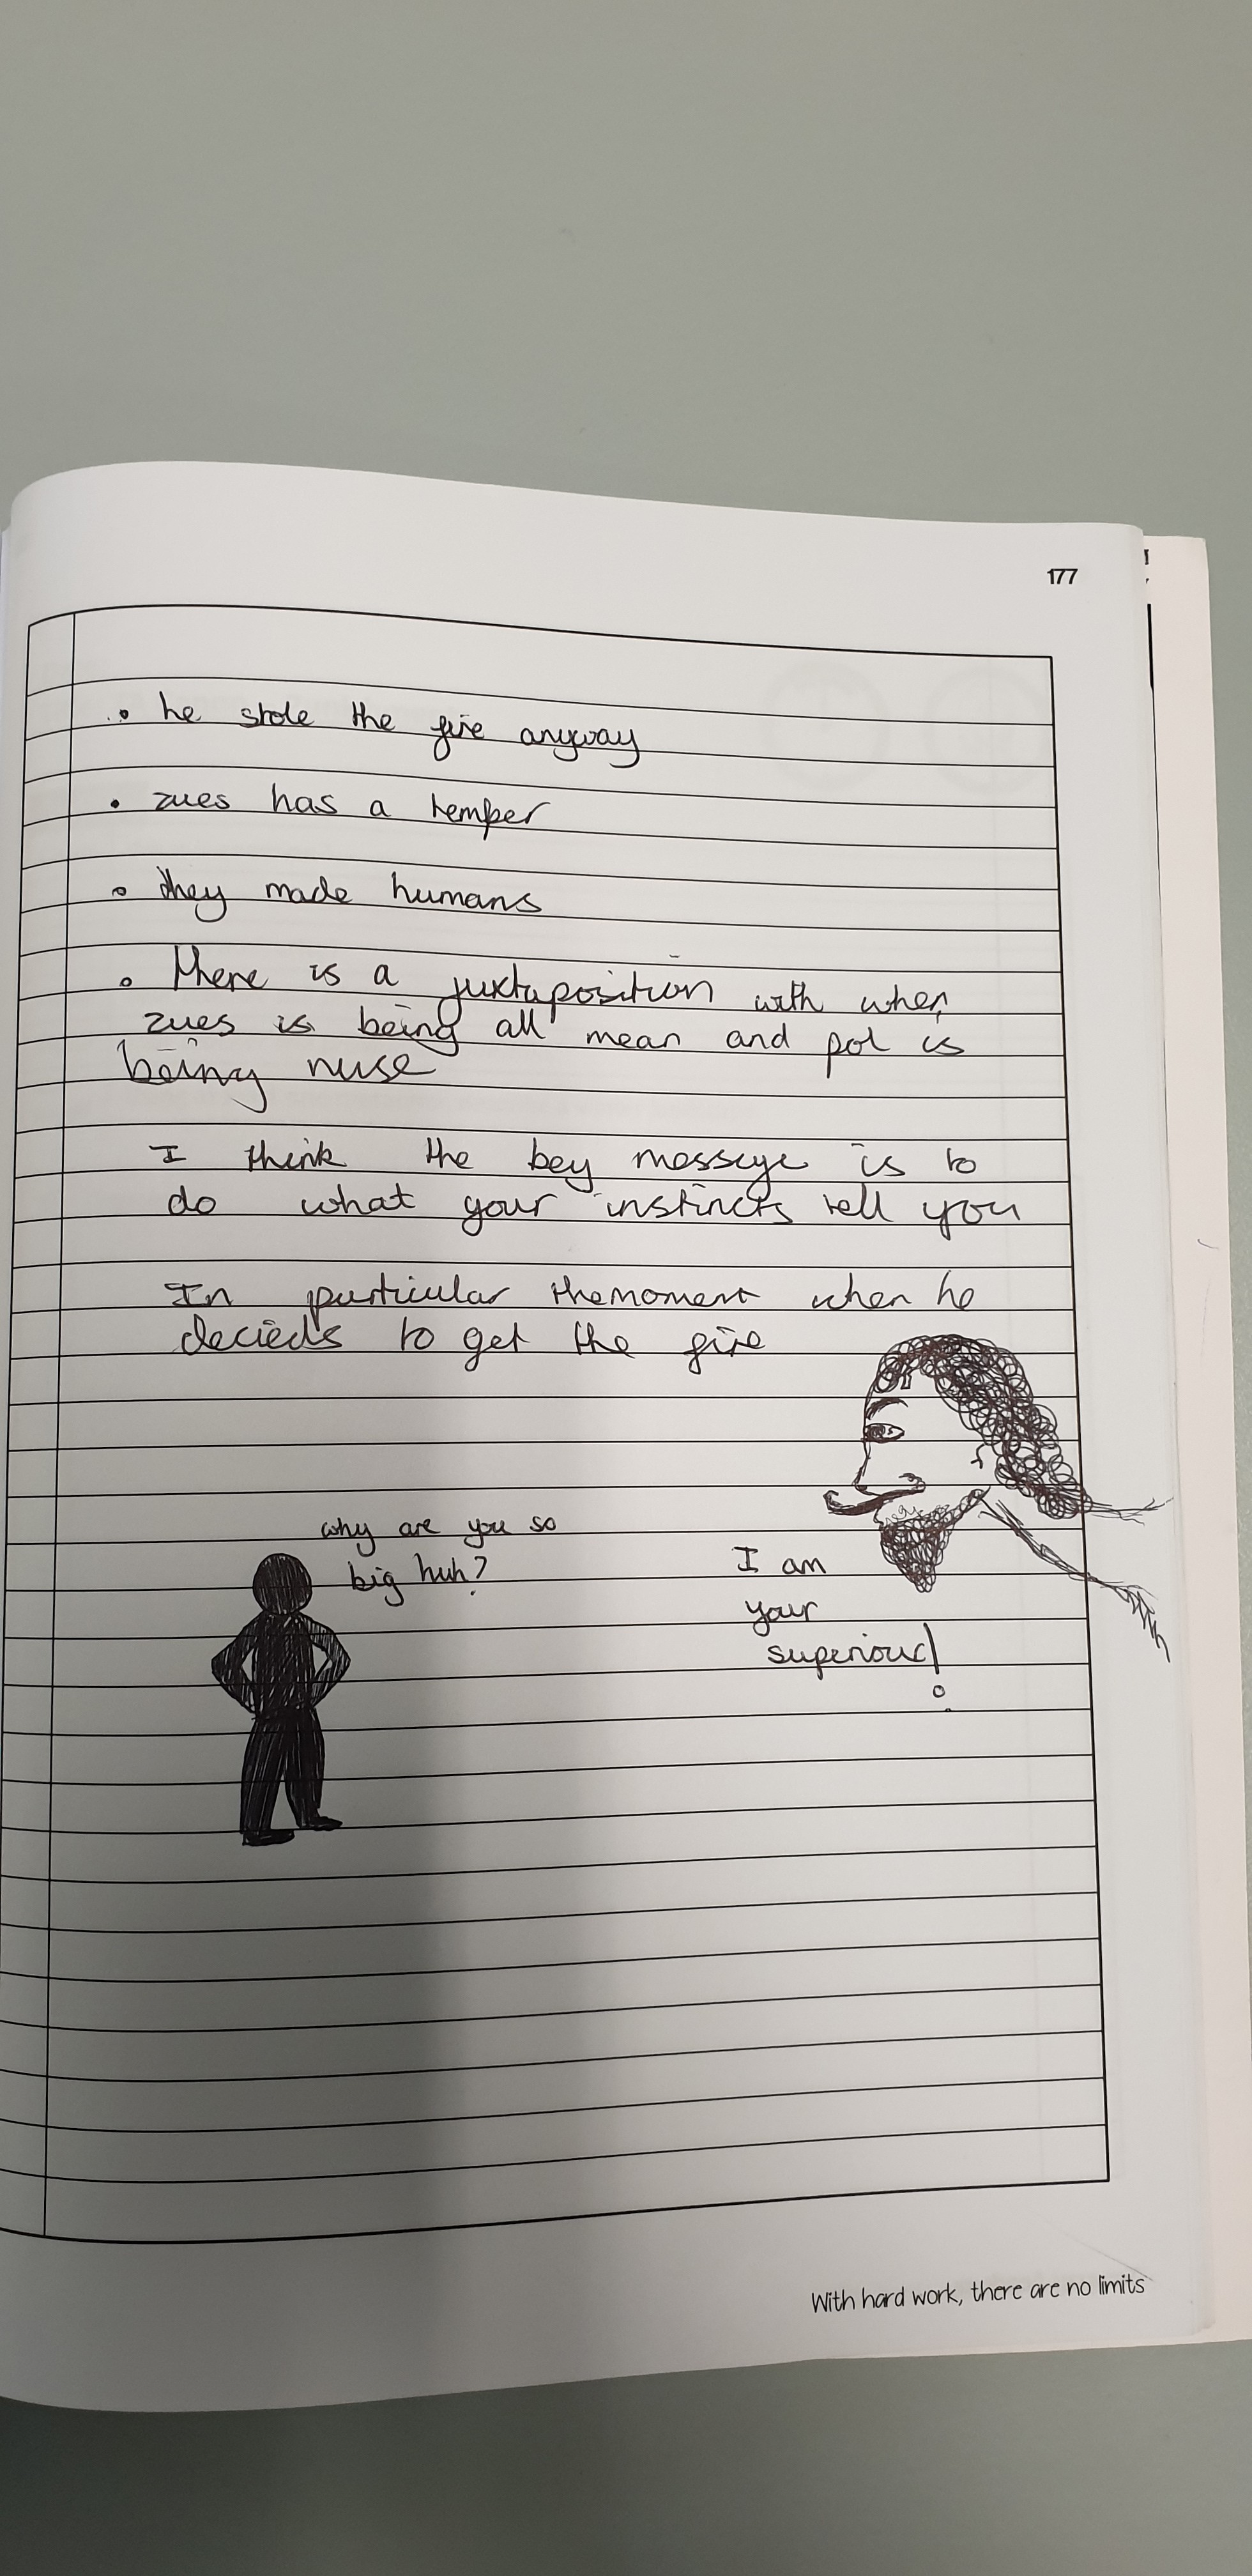 177
• he stole the fire anyway
• zues has a temper
• they made humans
• there is a juxtaposition with when
zues is being all mean and pol is
being nise
I think the key messege is to
do what your instincts tell you
In particular the moment when he
decieds to get the fire
why are you so
big huh?
I am
your
superiour!
With hard work, there are no limits